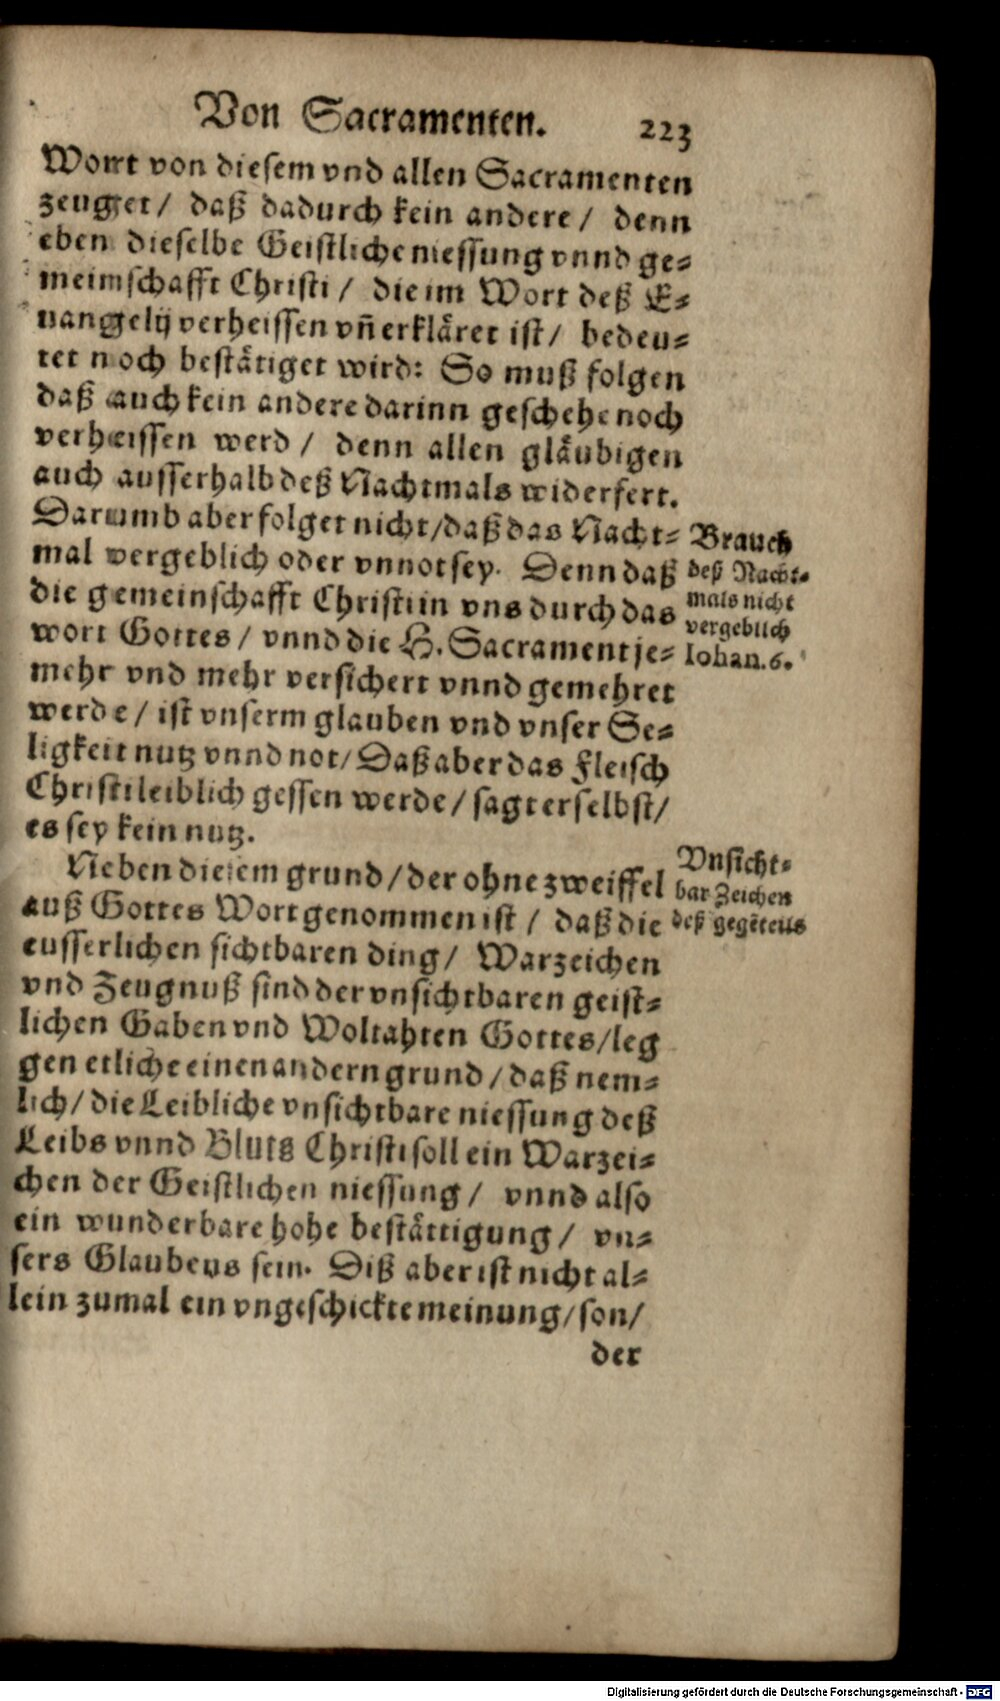 Von Sacramenten. 223
Wort von diesem vnd allen Sacramenten
zeuget / daß dadurch kein andere / denn
eben dieselbe Geistliche niessung vnnd ge-
meinschafft Christi / die im Wort deß E-
uangelij verheissen vñ erkläret ist / bedeu-
tet noch bestätiget wird: So muß folgen
daß auch kein andere darinn geschehe noch
verheissen werd / denn allen gläubigen
auch ausserhalb deß Nachtmals widerfert.
Darumb aber folget nicht / daß das Nacht-
mal vergeblich oder vnnot sey. Denn daß
die gemeinschafft Christi in vns durch das
wort Gottes / vnnd die H. Sacrament je-
mehr vnd mehr versichert vnnd gemehret
werde / ist vnserm glauben vnd vnser Se-
ligkeit nutz vnnd not / Daß aber das Fleisch
Christi leiblich gessen werde / sagt er selbst /
es sey kein nutz.
Brauch
deß Nacht-
mals nicht
vergeblich
Iohan.6.
Neben diesem grund / der ohne zweiffel
auß Gottes Wort genommen ist / daß die
eusserlichen sichtbaren ding / Warzeichen
vnd Zeugnuß sind der vnsichtbaren geist-
lichen Gaben vnd Woltahten Gottes / leg
gen etliche einen andern grund / daß nem-
lich / die Leibliche vnsichtbare niessung deß
Leibs vnnd Bluts Christi soll ein Warzei-
chen der Geistlichen niessung / vnnd also
ein wunderbare hohe bestättigung / vn-
sers Glaubens sein. Diß aber ist nicht al-
lein zumal ein vngeschickte meinung / son /
der
Vnsicht-
bar Zeichen
deß gegēteils
Digitalisierung gefördert durch die Deutsche Forschungsgemeinschaft - DFG